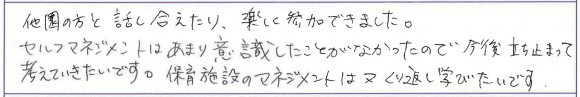 他園の方と話し合えたり、楽しく参加できました。
セルフマネジメントはあまり意識したことがなかったので今後立ち止まって
考えていきたいです。保育施設のマネジメントは又くり返し学びたいです